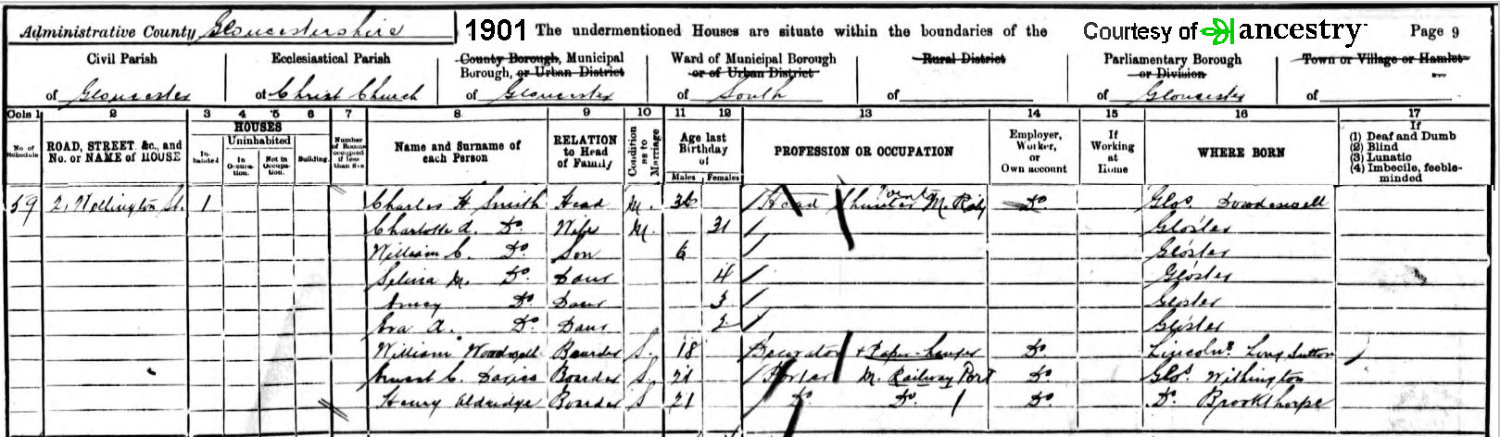 Administrative County Gloucestershire 1901 The undermentioned Houses are situate within the boundaries of the Courtesy of ancestry Page 9
Civil Parish Ecclesiastical Parish County Borough, Municipal Borough, or Urban District Ward of Municipal Borough or of Urban District Rural District Parliamentary Borough or Division Town or Village or Hamlet
of Gloucester of Christ Church of Gloucester of South of of Gloucester of
Cols 1 2 3 4 5 6 7 8 9 10 11 12 13 14 15 16 17
No. of Schedule ROAD, STREET, &c., and No. or NAME of HOUSE HOUSES Inhabited Uninhabited In Occupation. Not in Occupation. Building. Number of Rooms occupied if less than five Name and Surname of each Person RELATION to Head of Family Condition as to Marriage Age last Birthday of Males Females PROFESSION OR OCCUPATION Employer, Worker, or Own account If Working at Home WHERE BORN If (1) Deaf and Dumb (2) Blind (3) Lunatic (4) Imbecile, feeble-minded
59 2, Wellington St. 1 Charles H Smith Head M. 36 Head Shunter M. Rly Do Glos. Dowdeswell
Charlotte A. Do. Wife M. 31 Gloster
William C. Do. Son 6 Gloster
Selina M. Do. Daur 4 Gloster
Do. Daur 3 Gloster
Eva A. Do. Daur 2 Gloster
William Boarder S. 18 Decorator + Paper-hanger Do Lincolns. Long Sutton
Ernest C. Davies Boarder S. 21 Porter M. Railway Port Do. Glos. Withington
Henry Aldridge Boarder S 21 Do Do. Do. Do. Brookthorpe